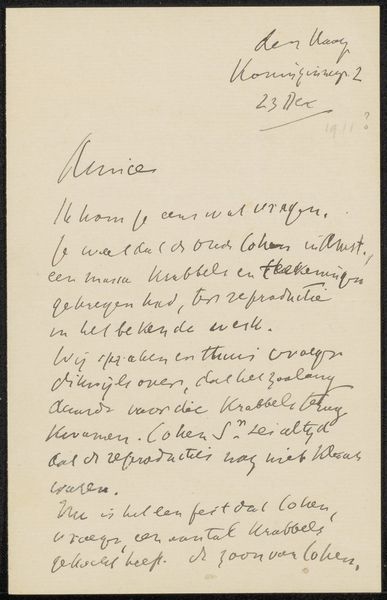 den Haag
Koninginnegr. 2
23 Dec
1911?
Amice
Ik kom je eens wat vragen.
Je weet dat de oude Cohen in Amst.,
een massa Krabbels en teekeningen
gekregen had, ter reproductie
in het bekende werk.
Wij spraken er thuis vroeger
dikwijls over, dat het zoolang
duurde voor die Krabbels terug
kwamen. Cohen Sr zei altijd
dat de reproducties nog niet klaar
waren.
Nu is het een feit dat Cohen,
vroeger, een aantal Krabbels
gekocht heeft. de zoon van Cohen,